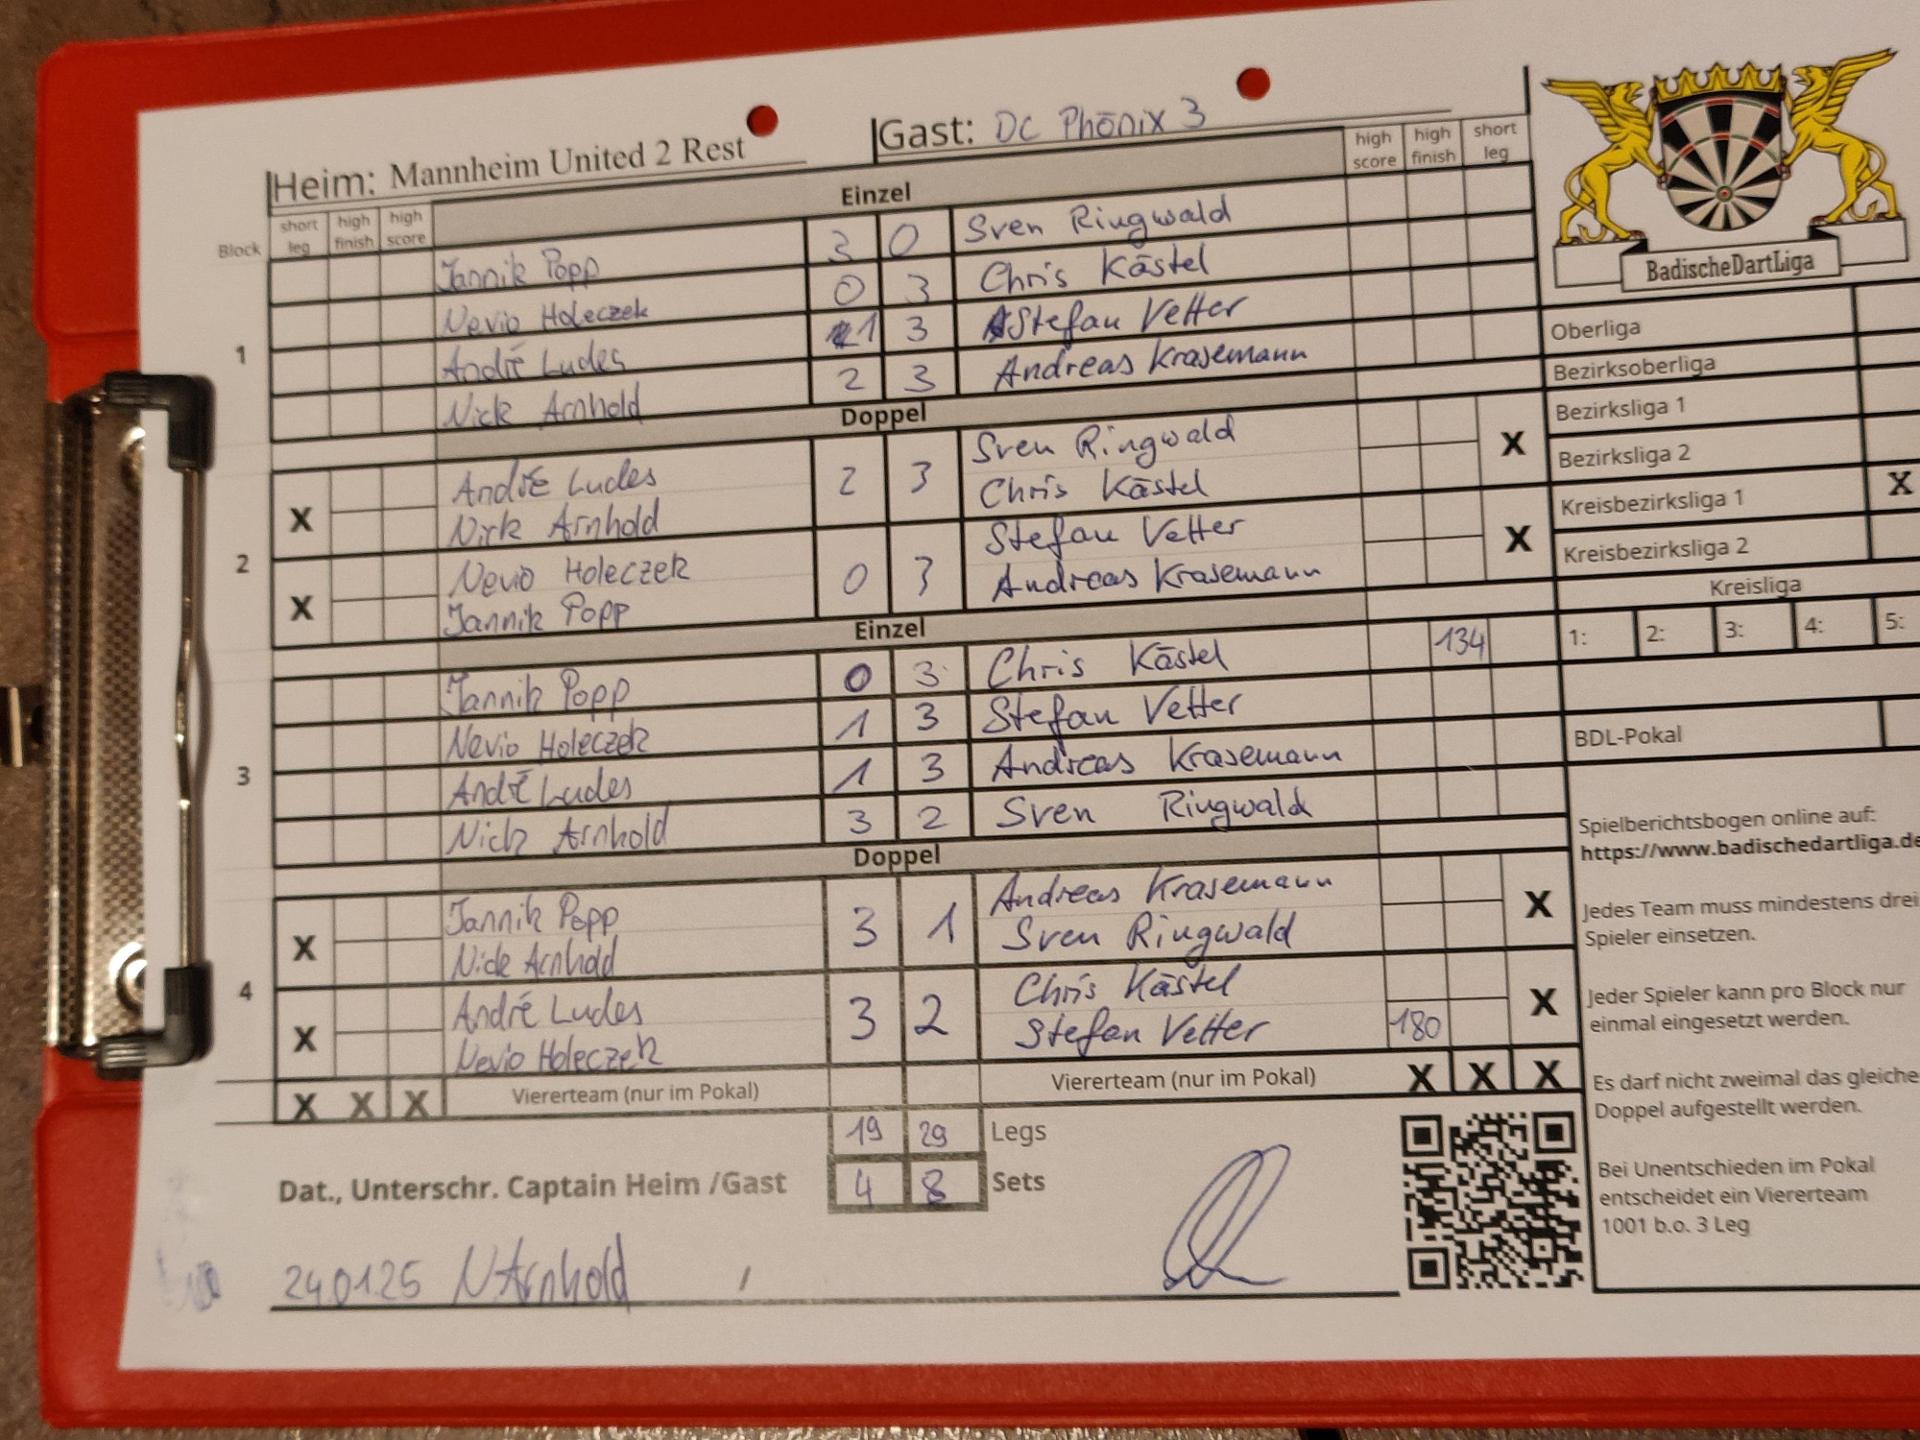 Heim: Mannheim United 2 Rest
Gast: DC Phönix 3
Block short leg high finish high score Einzel high score high finish short leg
Jannik Popp 3 0 Sven Ringwald
Nevio Holeczek 0 3 Chris Kästel
1 André Ludes 1 3 Stefan Vetter
Nick Arnhold 2 3 Andreas Krasemann
Doppel
X André Ludes 2 3 Sven Ringwald X
Nick Arnhold Chris Kästel
2
X Nevio Holeczek 0 3 Stefan Vetter X
Jannik Popp Andreas Krasemann
Einzel
Jannik Popp 0 3 Chris Kästel 134
Nevio Holeczek 1 3 Stefan Vetter
3 André Ludes 1 3 Andreas Krasemann
Nick Arnhold 3 2 Sven Ringwald
Doppel
X Jannik Popp 3 1 Andreas Krasemann X
Nick Arnhold Sven Ringwald
4
X André Ludes 3 2 Chris Kästel X
Nevio Holeczek Stefan Vetter 180
X X X Viererteam (nur im Pokal) Viererteam (nur im Pokal) X X X
19 29 Legs
Dat., Unterschr. Captain Heim /Gast 4 8 Sets
24.01.25 N.Arnhold /
BadischeDartLiga
Oberliga
Bezirksoberliga
Bezirksliga 1
Bezirksliga 2
Kreisbezirksliga 1 X
Kreisbezirksliga 2
Kreisliga
1: 2: 3: 4: 5:
BDL-Pokal
Spielberichtsbogen online auf:
https://www.badischedartliga.de
Jedes Team muss mindestens drei
Spieler einsetzen.
Jeder Spieler kann pro Block nur
einmal eingesetzt werden.
Es darf nicht zweimal das gleiche
Doppel aufgestellt werden.
Bei Unentschieden im Pokal
entscheidet ein Viererteam
1001 b.o. 3 Leg